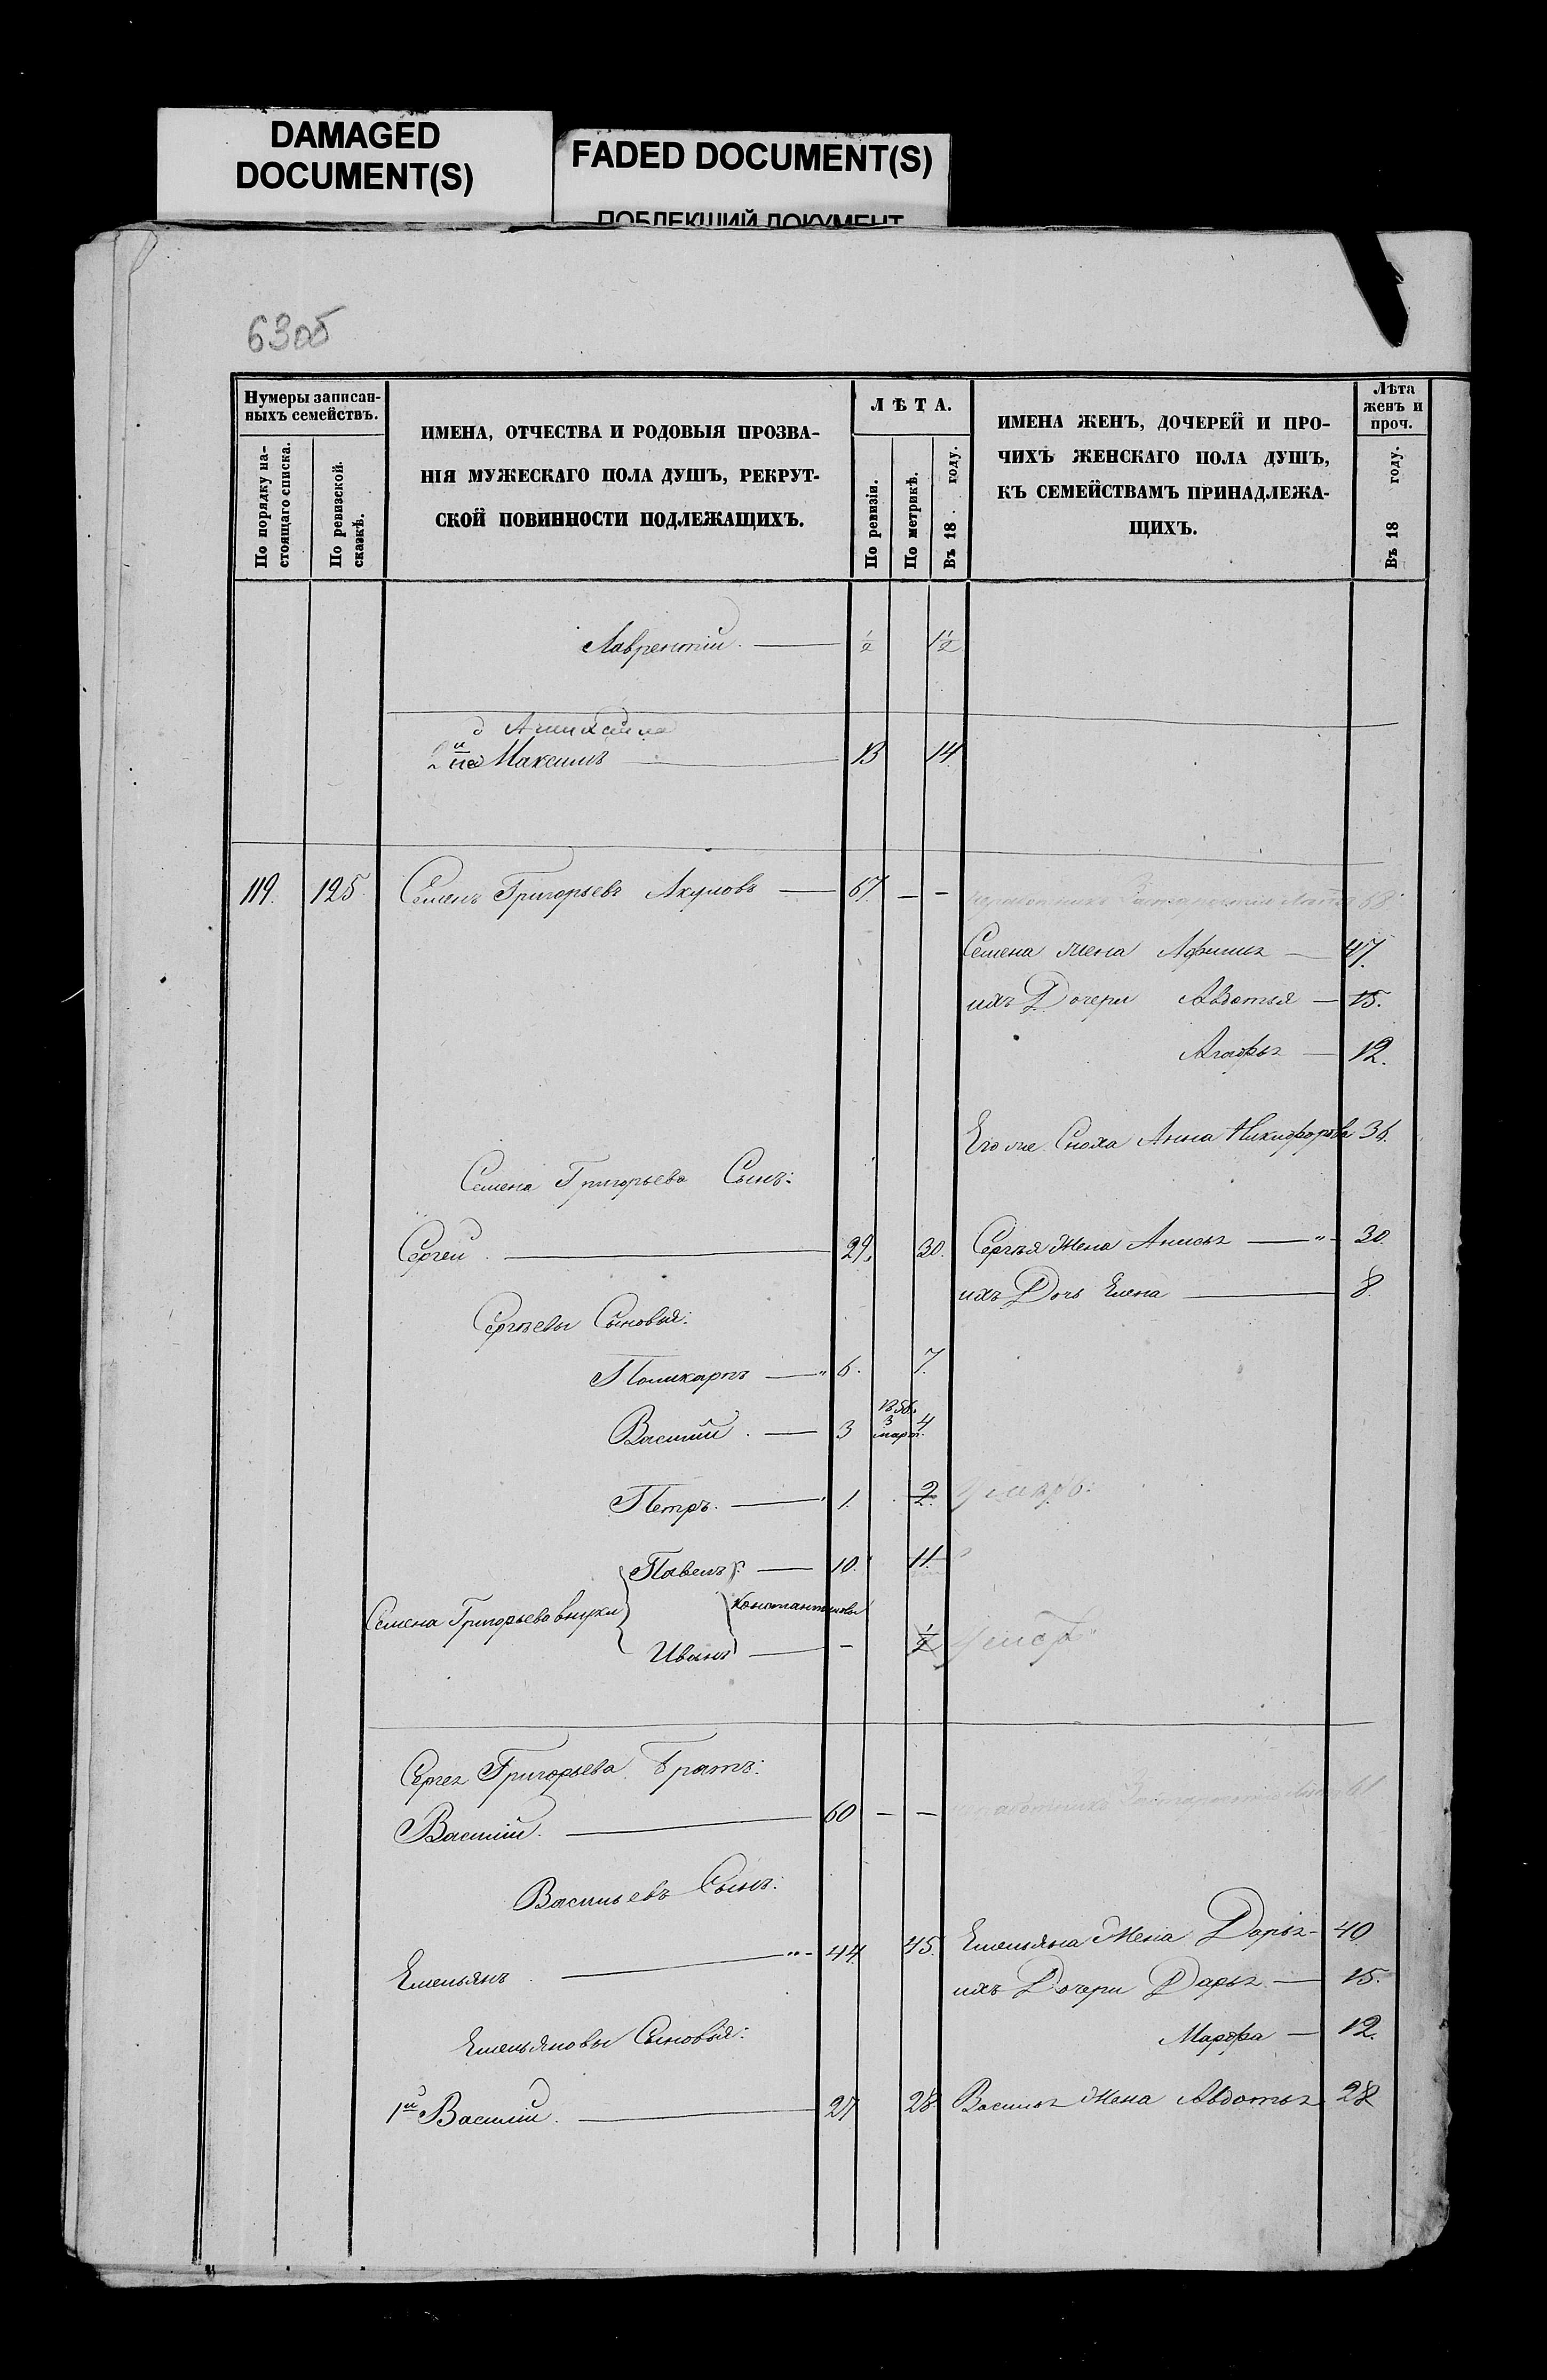 DAMAGED
DOCUMENT(S)
FADED DOCUMENT(S)
ПОБЛЕКШИЙ ДОКУМЕНТ
63об
Нумеры записан-
ныхъ семействъ.
По порядку на-
стоящаго списка.
По ревизской
сказкѣ.
ИМЕНА, ОТЧЕСТВА И РОДОВЫЯ ПРОЗВА-
НІЯ МУЖЕСКАГО ПОЛА ДУШЪ, РЕКРУТ-
СКОЙ ПОВИННОСТИ ПОДЛЕЖАЩИХЪ.
ЛѢТА.
По ревизіи.
По метрикѣ.
Въ 18 . году.
ИМЕНА ЖЕНЪ, ДОЧЕРЕЙ И ПРО-
ЧИХЪ ЖЕНСКАГО ПОЛА ДУШЪ,
КЪ СЕМЕЙСТВАМЪ ПРИНАДЛЕЖА-
ЩИХЪ.
Лѣта
женъ и
проч.
Въ 18 году.
Лаврентій. — ½ 1½
2й Максимъ — 13 14.
119. 125. Семенъ Григорьевъ Акуловъ — 67. — — 68
Семена жена Афимья — 47.
ихъ Дочери Авдотья — 15.
Агафья — 12.
Его же Сноха Анна Никифорова 36.
Семена Григорьева Сынъ:
Сергей. — 29. 30. Сергѣя Жена Анисья — " 30.
ихъ Дочь Елена — 8.
Сергѣевы Сыновья:
Поликарпъ — " 6. 7.
Василій. — 3 1856. 3 март. 4
Петръ. — 1. 2. Умеръ.
Павелъ — 10. 11.
Семена Григорьева внуки Константиновы
Иванъ — — ½ Умеръ
Сергея Григорьева Братъ:
Василій. — 60 — — 61
Васильевъ Сынъ:
Емельянъ. — "- 44. 45. Емельяна Жена Дарья - 40
ихъ Дочери Дарья — 15.
Емельяновы Сыновья:
Марфа — 12.
1й Василій. — 27 28 Василья Жена Авдотья 28